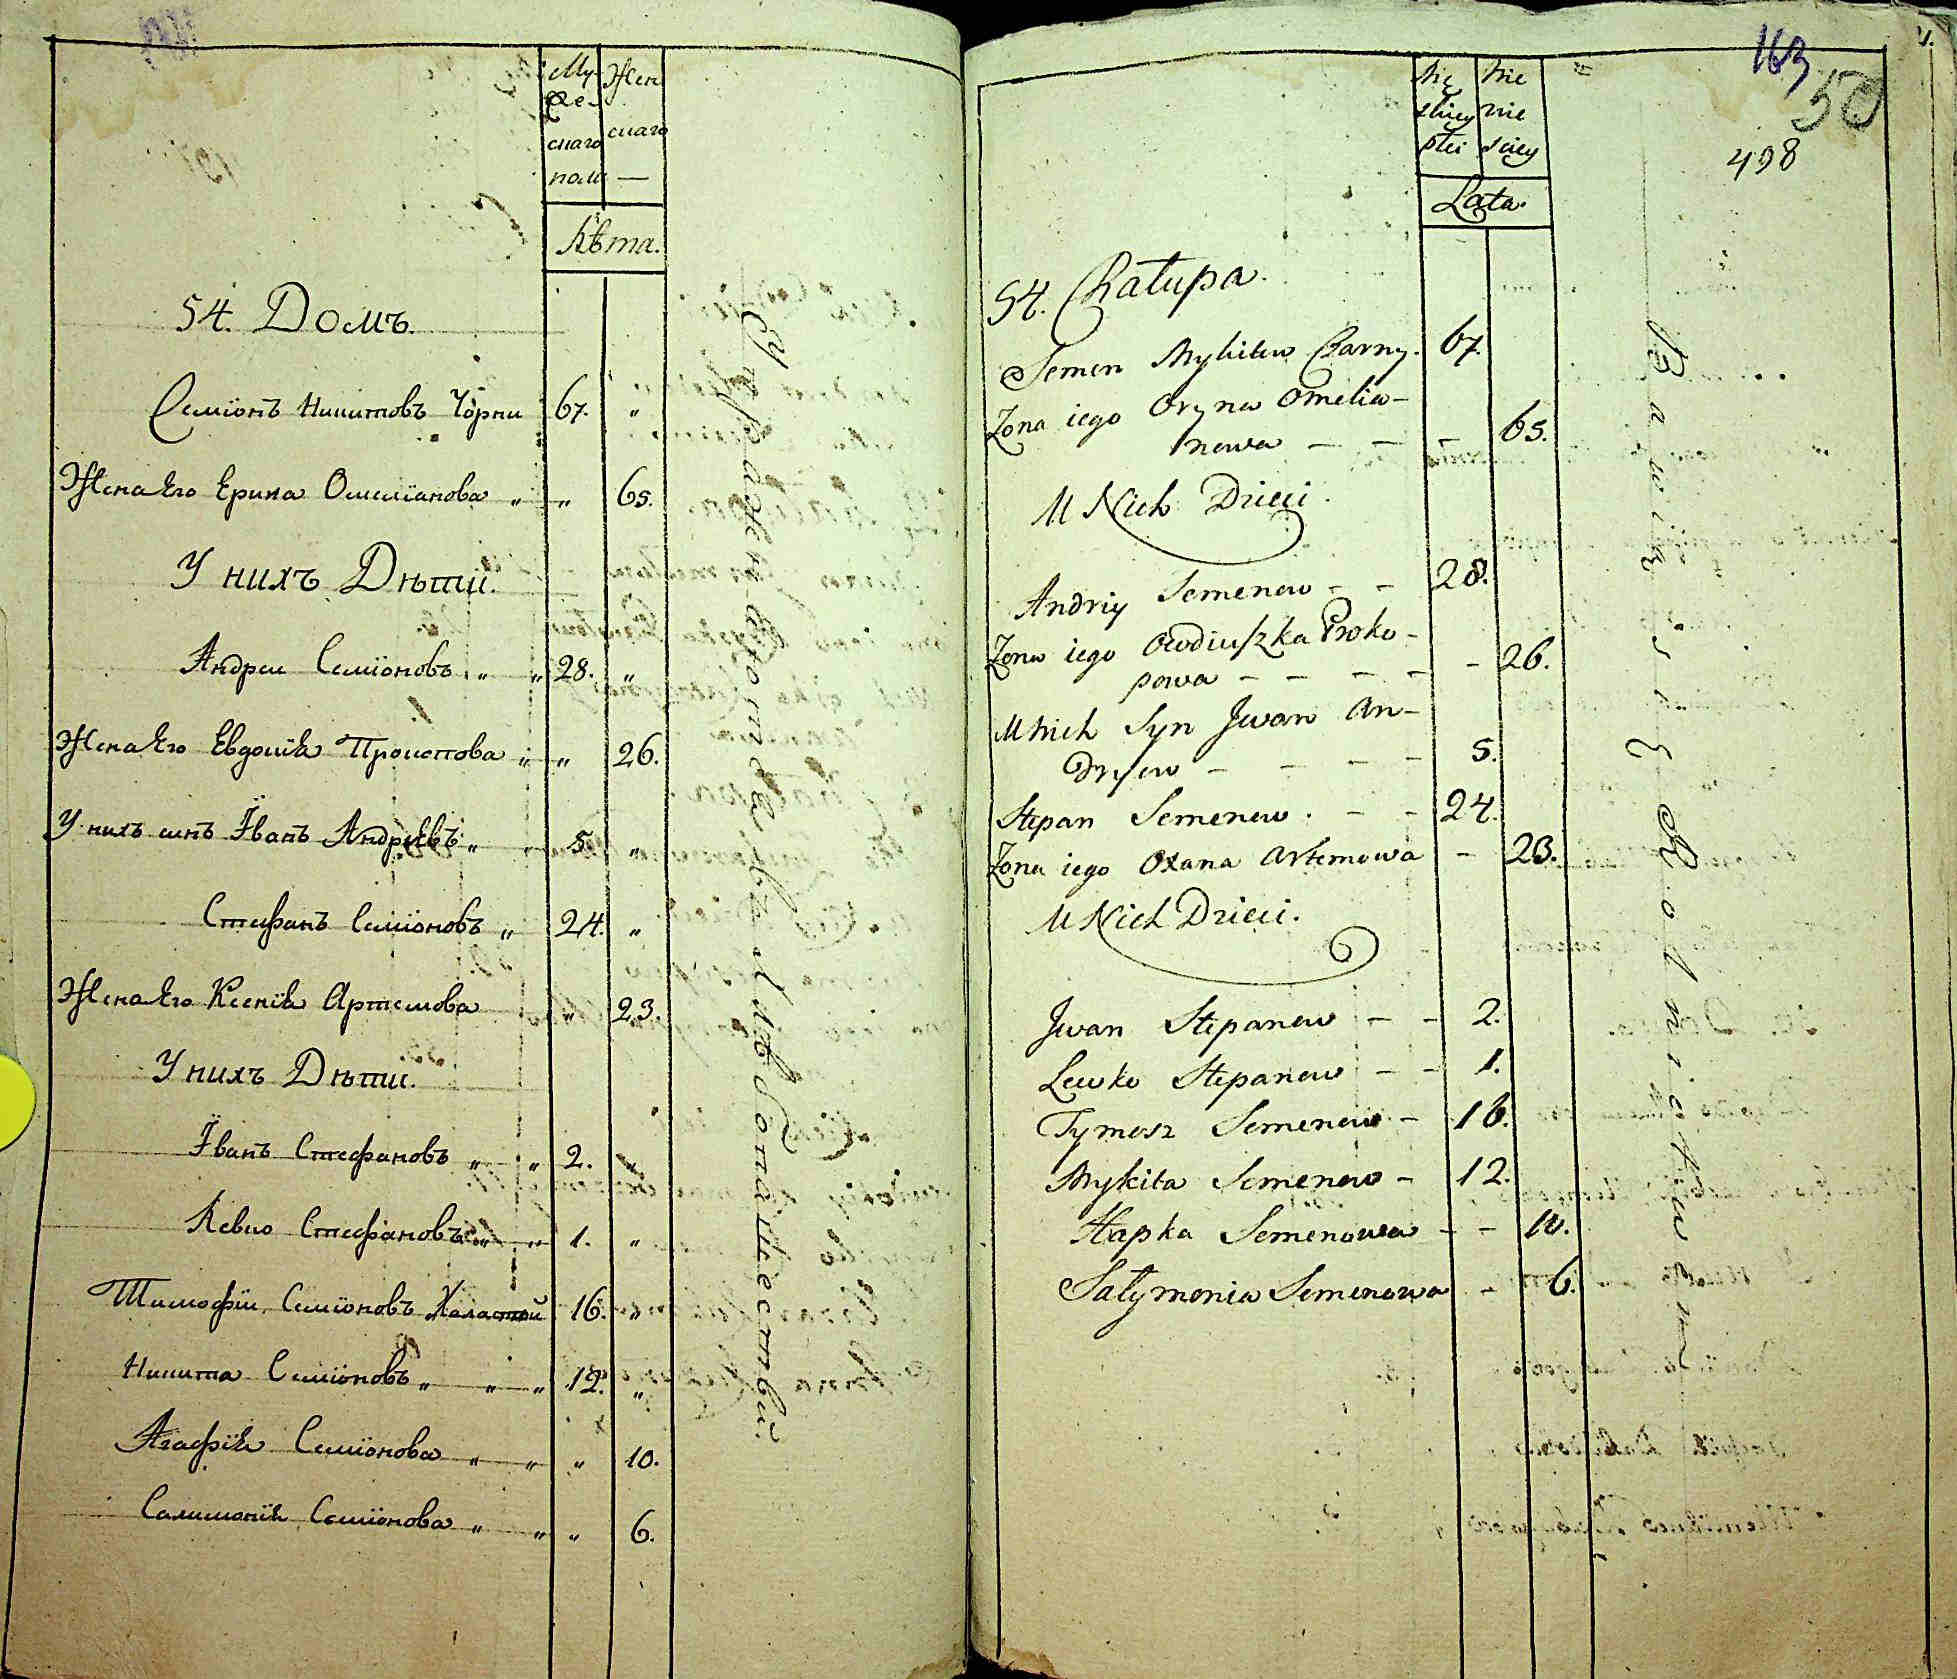 Мужескаго полу
Женскаго
Лѣта.
54. Домъ.
Семіонъ Никитовъ Чорни 67. „
Жена Его Ерина Омеліанова „ „ 65.
У нихъ Дѣти.
Андреи Семіоновъ „ „ 28. „
Жена Его Евдокіѧ Прокопова „ „ 26.
У нихъ синъ Їванъ Андрѣевъ „ 5. „
Стефанъ Семіоновъ „ 24. „
Жена Его Ксеніѧ Артемова „ 23.
У нихъ Дѣти.
Їванъ Стефановъ „ „ 2. „
Левко Стефановъ „ „ 1. „
Тимофіи Семіоновъ Халастой 16. „
Никита Семіоновъ „ „ „ 12. „
Агафіѧ Семіонова „ „ „ 10.
Салимоніѧ Семіонова „ „ „ 6.
Упражняются въ хлѣбопашествѣ.
163
50
498
Męskiey płci
Lata.
54. Chałupa.
Semen Mykitow Czarny. 67.
Zona iego Oryna Omelia-
nowa – – – 65.
U Nich Dzieci.
Andriy Semenow – – 28.
Zona iego Owdiuszka Proko-
powa – – – – – 26.
U nich Syn Jwan An-
dryiow – – – – 5.
Stepan Semenow. – – 24.
Zona iego Oxana Artemowa – 23.
U Nich Dzieci.
Jwan Stepanow – – 2.
Lewko Stepanow – – 1.
Tymosz Semenow – 16.
Mykita Semenow – 12.
Hapka Semenowa – – 10.
Sałymonia Semenowa – 6.
Bawią się Rolnictwem